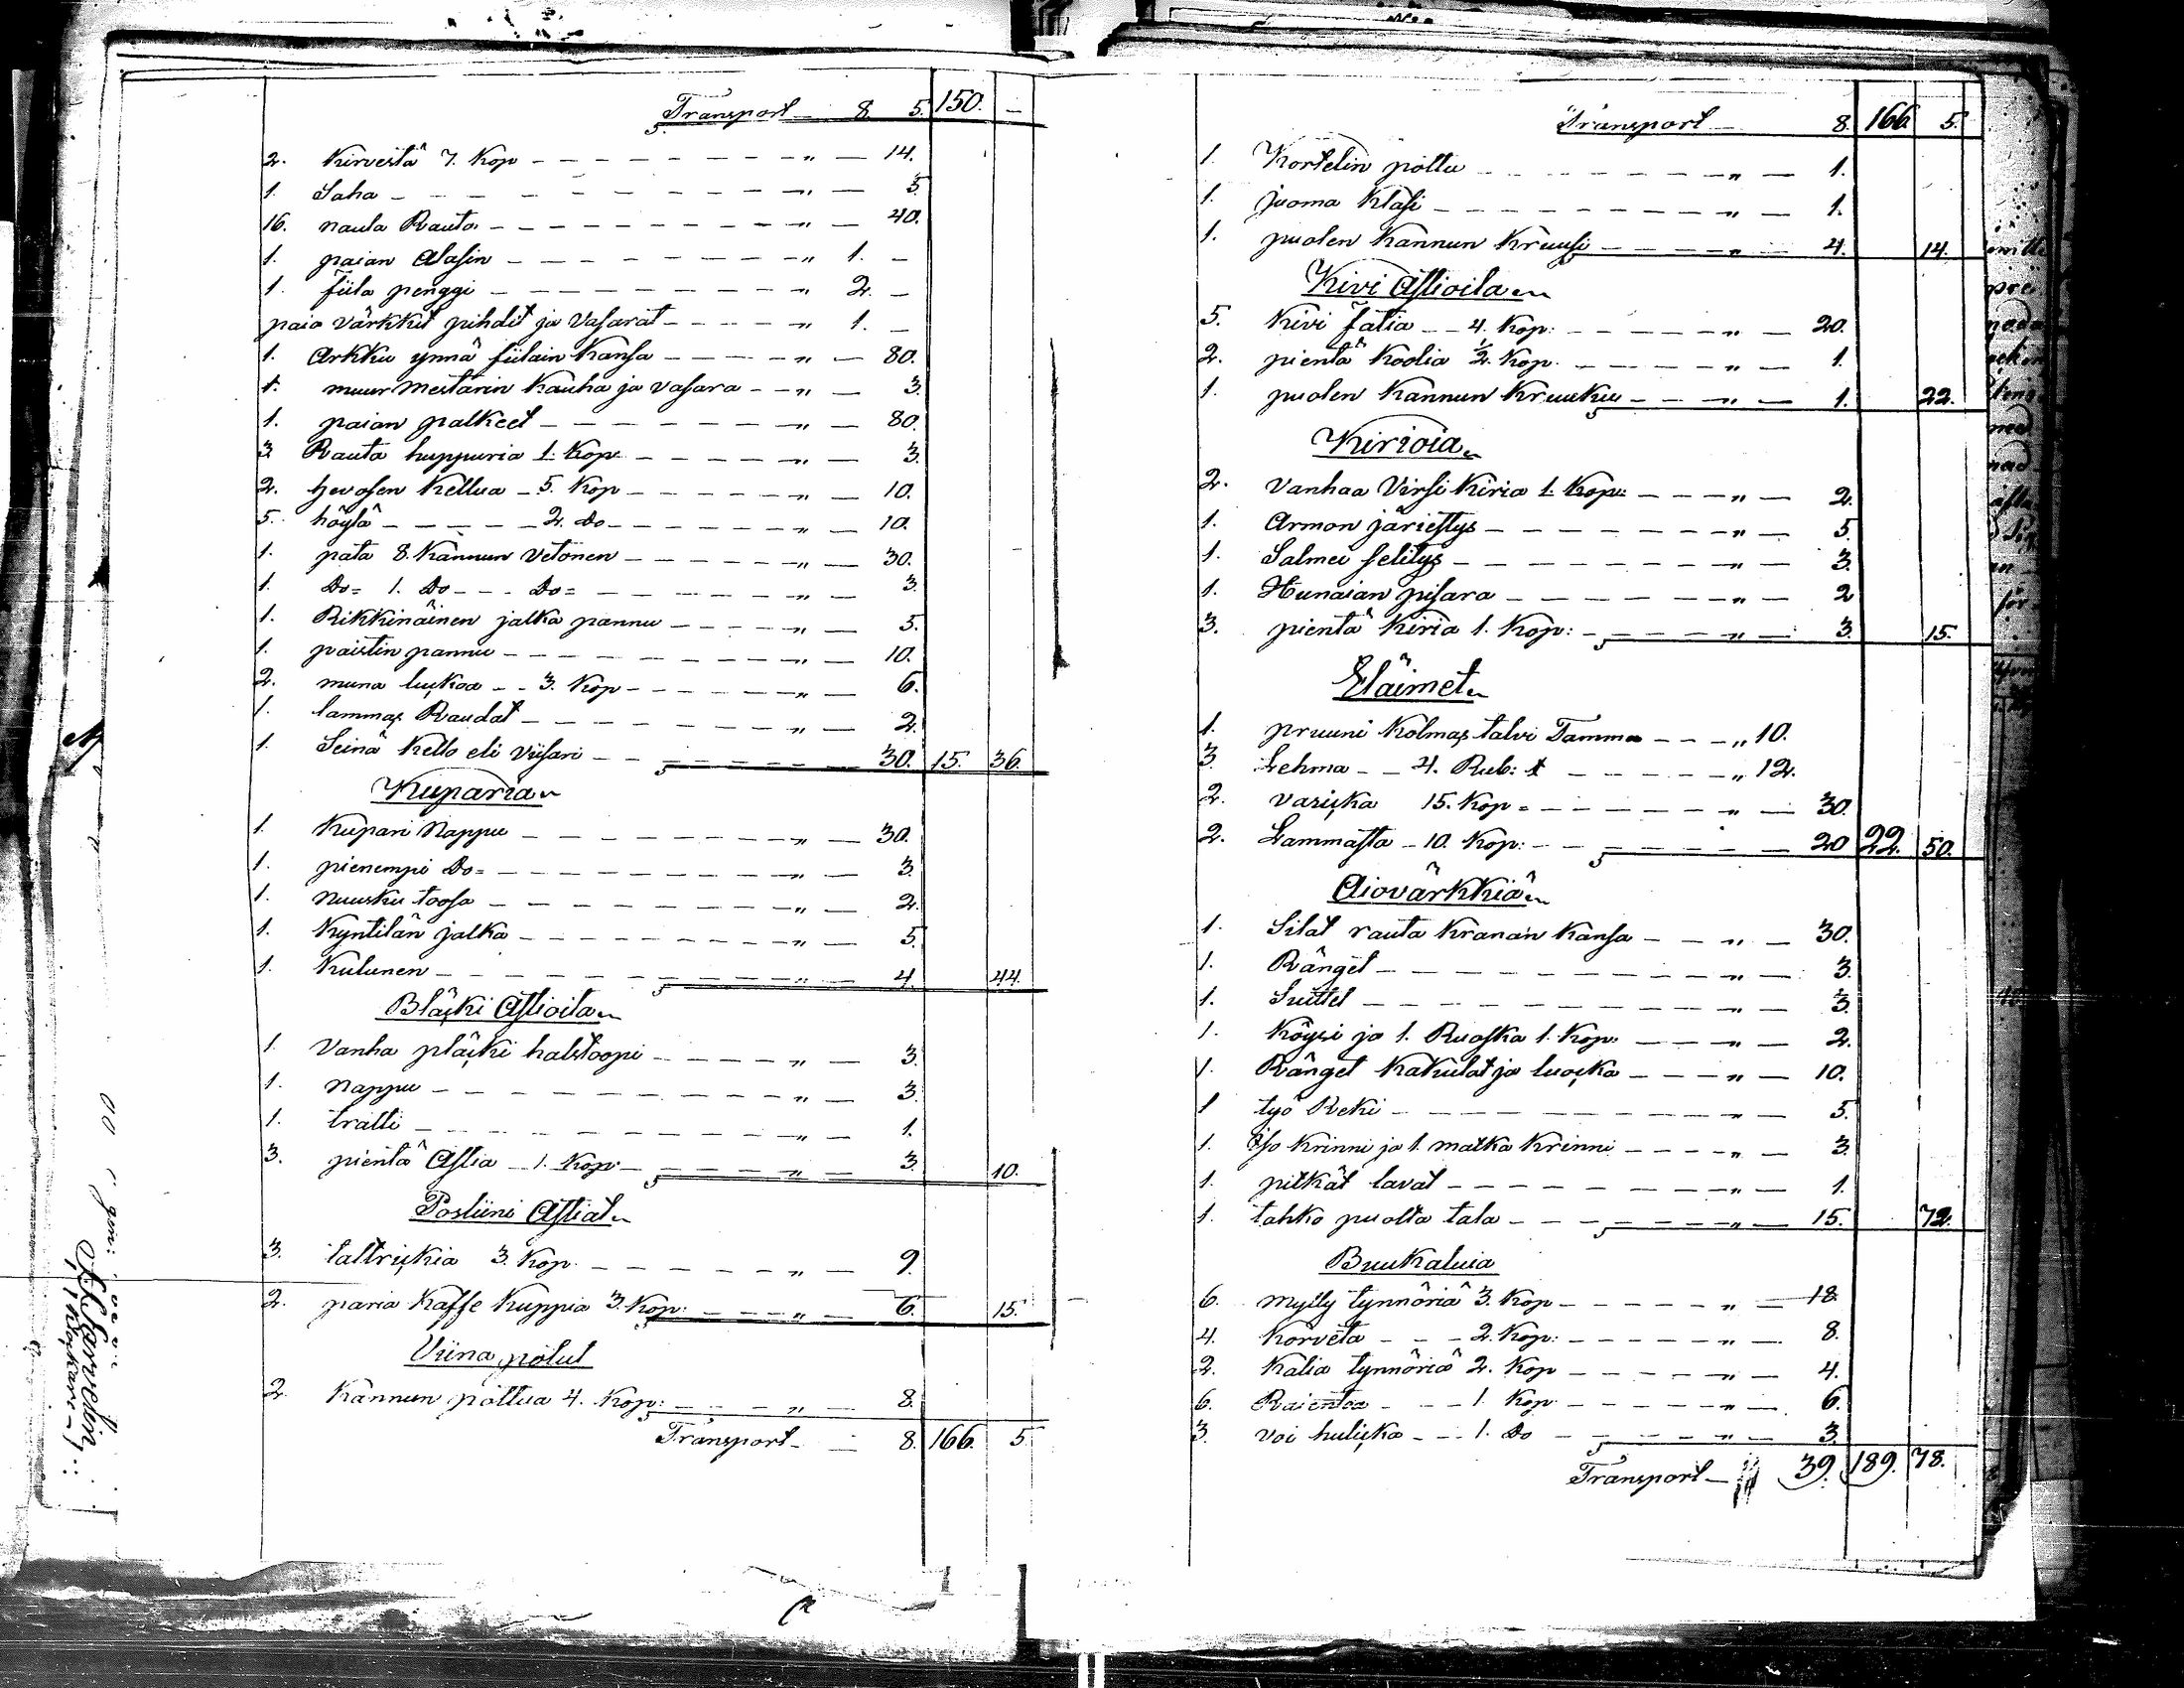 Transport 8. 5. 150. –
2. Kirvestä 7. Kop „ 14.
1. Saha „ 5
16. naula Rauta „ 40.
1. paian Alasin „ 1. –
1. fiila penggi „ 2. –
paia värkkit pihdit ja Vasarat „ 1. –
1. Arkku ynnä fiilain Kansa „ 80.
1. muur mestarin Kauha ja vasara „ 3.
1. paian palkeet „ 80.
3 Rauta huppuria 1. Kop „ 3.
2. hevosen Kellua 5. Kop „ 10.
5. höylä 2. Do „ 10.
1. pata 8. Kannun Vetonen „ 30.
1. Do= 1. Do Do= „ 3.
1. Rikkinäinen jalka pannu „ 5.
1. paistin pannu „ 10.
2. muna luskoa 3. Kop „ 6.
1. lammas Raudat „ 2.
1. Seinä Kello eli Viisari 30. 15. 36.
Kuparia
1. Kupari Nappu „ 30.
1. pienempi Do= „ 3.
1. Nuusku toosa „ 2.
1. Kyntilän jalka „ 5.
1. Kulunen „ 4. 44.
Bläski Astioita
1. Vanha pläski halstoopi „ 3.
1. Nappu „ 3.
1. tratti „ 1.
3. pientä Astia 1. Kop „ 3. 10.
Posliini Astiat
3. taltriskia 3. Kop „ 9.
2. paria Kaffe Kuppia 3. Kop: „ 6. 15.
Viina potut
2. Kannun pottua 4. Kop: „ 8.
Transport 8. 166. 5.
Transport 8. 166. 5.
1. Kortelin pottu „ 1.
1. juoma Klasi „ 1.
1. puolen Kannun Kruusi „ 4. 14.
Kivi Astioita
5. Kivi fatia 4. Kop: „ 20.
2. pientä Koolia ½ Kop. „ 1.
1. puolen Kannun Kruuku „ 1. 22.
Kirioia
2. Vanhaa Virsi Kiria 1. Kop: „ 2.
1. Armon järiestys „ 5.
1. Salmei selitys „ 3.
1. Hunaian pisara „ 2
3. pientä Kiria 1. Kop: „ 3. 15.
Eläimet
1. pruuni Kolmas talvi Tamma „ 10.
3. Lehma 4. Rub: „ 12.
2. vasiska 15. Kop= „ 30.
2. Lammasta 10. Kop: 20 22. 50.
Aiovärkkiä
1. Silat rauta Kranan Kansa „ 30.
1. Ränget „ 3.
1. Suittet „ 3.
1. Köysi ja 1. Ruoska 1. Kop. „ 2.
1. Ränget Kakulat ja luoska „ 10.
1 työ Reki „ 5.
1. iso Krinni ja 1. matka Krinni „ 3.
1. pitkät lavat „ 1.
1. tahko puolta tala „ 15. 72.
Buukaluia
6. Mylly tynnöriä 3. Kop „ 18
4. Korveta 2. Kop: „ 8.
2. Kalia tynnöriä 2. Kop „ 4.
6. Raientoa 1. Kop „ 6.
3. voi huliska 1. Do „ 3.
Transport 39. 189. 78.